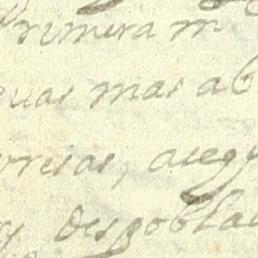 Primera m
guas mas ab
presas, asegu
y despobla